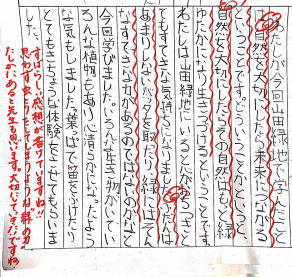 わたしが今回山田緑地で学んだこと
は自然を大切にしたら未来につながる
ということです。どういうことかというと、
自然を大切にしたらその自然がもっと緑
ゆたかになり生きつづけるということです。
わたしは山田緑地にいるとおちつきと
てもすてきな気持ちになります。ふだんは
あまりしないバッタを取だり、緑にはそん
なすてきな力があるのではないのかなと
今回学びました。いろんな生き物がいてい
ろんな植物もあり心清らかになったよう
な気もしました。葉ぱで笛をふけたり
とてもきちょうな体験をさせてもらいま
した。
すばらしい感想が書けていますね!!
思わず虫とりをしてしまう
たしかにあると先生も思います。大切にしていきたいですね。